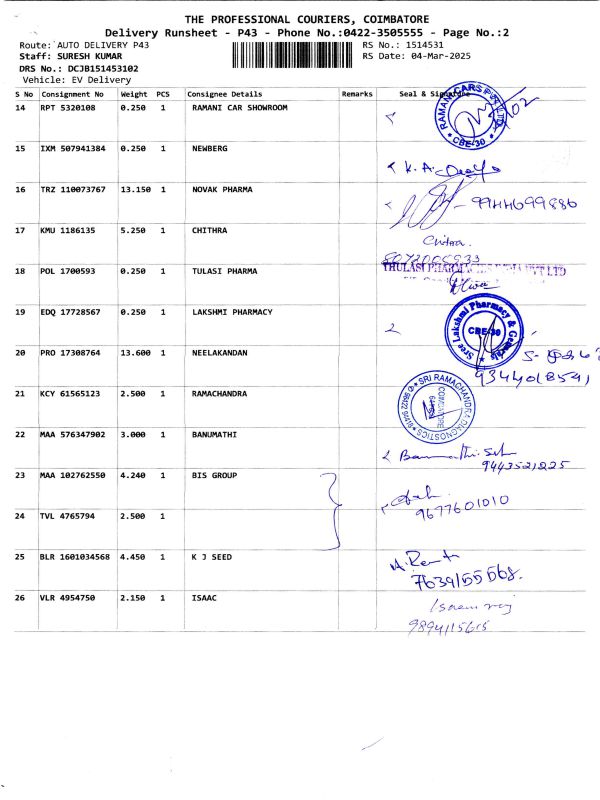 THE PROFESSIONAL COURIERS, COIMBATORE
Delivery Runsheet - P43 - Phone No.:0422-3505555 - Page No.:2
Route: AUTO DELIVERY P43 RS No.: 1514531
Staff: SURESH KUMAR RS Date: 04-Mar-2025
DRS No.: DCJB151453102
Vehicle: EV Delivery
S No Consignment No Weight PCS Consignee Details Remarks Seal & Signature
14 RPT 5320108 0.250 1 RAMANI CAR SHOWROOM
RAMANI CARS PVT LTD CBE-30
15 IXM 507941384 0.250 1 NEWBERG
K. A.
16 TRZ 110073767 13.150 1 NOVAK PHARMA
9944699886
17 KMU 1186135 5.250 1 CHITHRA
Chitra.
18 POL 1700593 0.250 1 TULASI PHARMA
THULASI PHARMACIES INDIA PVT LTD
19 EDQ 17728567 0.250 1 LAKSHMI PHARMACY
Sree Lakshmi Pharmacy & Generals CBE-30
20 PRO 17308764 13.600 1 NEELAKANDAN
9344018591
21 KCY 61565123 2.500 1 RAMACHANDRA
SRI RAMACHANDRA DIAGNOSTICS COIMBATORE
22 MAA 576347902 3.000 1 BANUMATHI
9443521225
23 MAA 102762550 4.240 1 BIS GROUP
9677601010
24 TVL 4765794 2.500 1
25 BLR 1601034568 4.450 1 K J SEED
7639155568.
26 VLR 4954750 2.150 1 ISAAC
9894115615